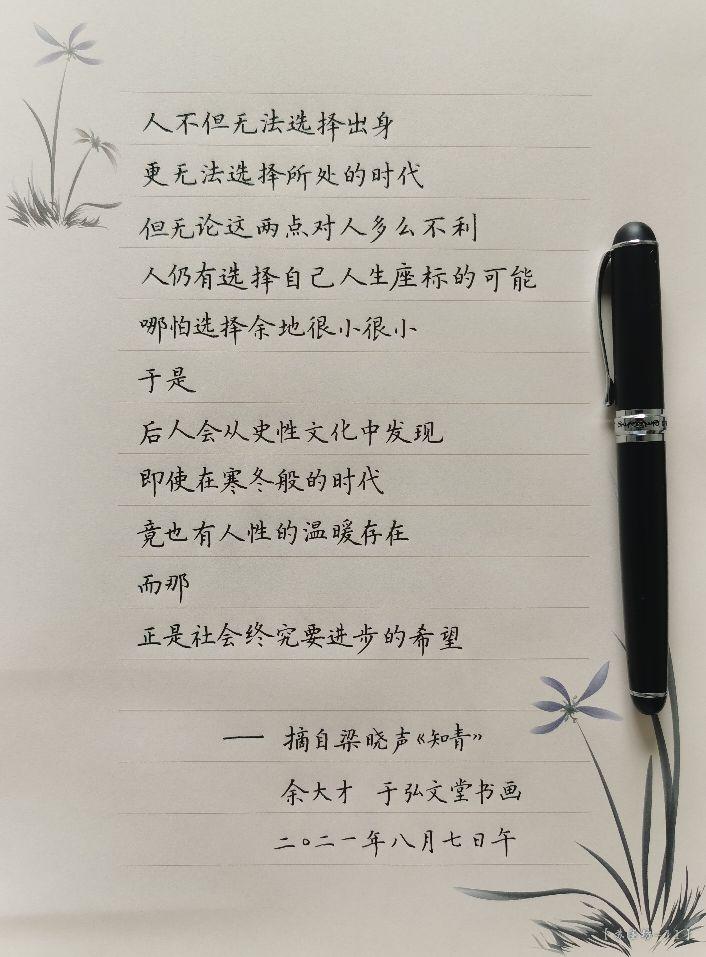 人不但无法选择出身
更无法选择所处的时代
但无论这两点对人多么不利
人仍有选择自己人生座标的可能
哪怕选择余地很小很小
于是
后人会从史性文化中发现
即使在寒冬般的时代
竟也有人性的温暖存在
而那
正是社会终究要进步的希望
—— 摘自梁晓声《知青》
余大才 于弘文堂书画
二〇二一年八月七日午